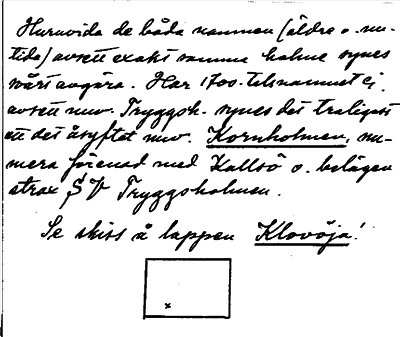 Huruvida de båda namnen (äldre o. nu-
tida) avsett exakt samma holme synes
svårt avgöra. Har 1700-talsnamnet ej
avsett nuv. Tryggsh. synes det troligast
att det åsyftat nuv. Kornholmen, nu-
mera förenad med Kallsö o. belägen
strax SV Tryggsholmen.
Se skiss å lappen Klovöja!
x